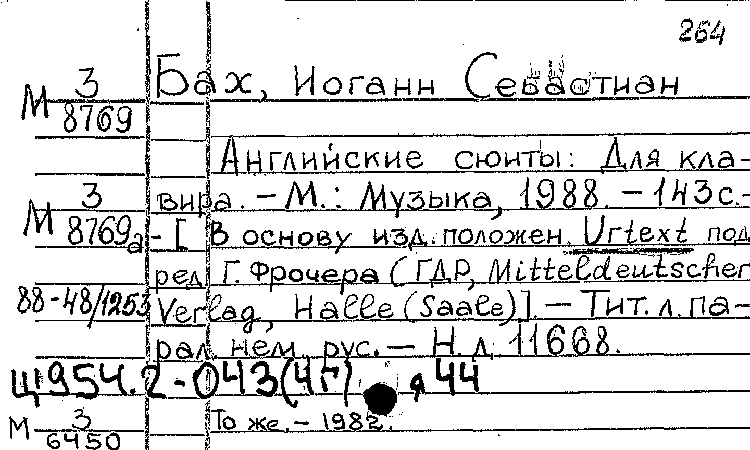 264
М 3/8769
Бах, Иоганн Себастиан
Английские сюиты: Для кла-
М 3/8769а
вира. – М.: Музыка, 1988. – 143 с. –
– [В основу изд. положен Urtext под
ред. Г. Фрочера (ГДР, Mitteldeutscher
88-48/1253
Verlag, Halle (Saale)]. – Тит. л. па-
рал. нем., рус. – Н. д. 11668.
Щ954.2-043(4Г) я44
М 3/6450
То же. – 1982.